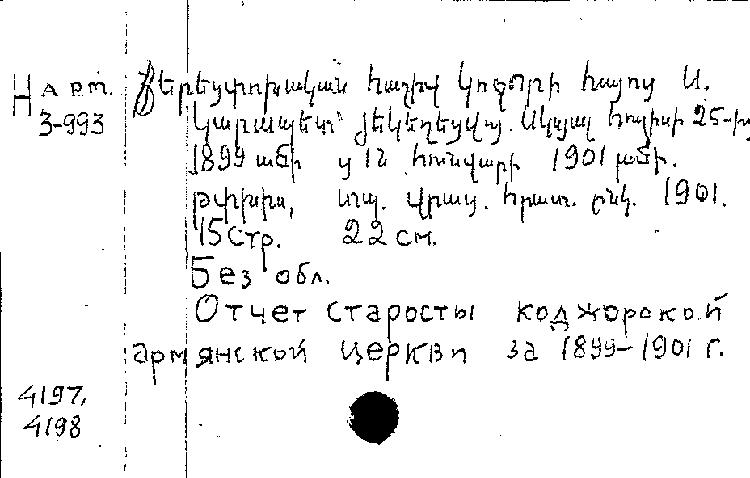 Н арт. Երեսփոխական հաշիւ Կոջօրի հայոց Ս.
3-993 Կարապետ եկեղեցւոյ. Սկսյալ հուլիսի 25-ից
1899 ամի ց 12 հունվարի 1901 ամի.
Թիֆլիս, տպ. Վրաց. հրատ. ընկ. 1901.
15 стр. 22 см.
Без обл.
Отчет старосты коджорской
армянской церкви за 1899-1901 г.
4197,
4198